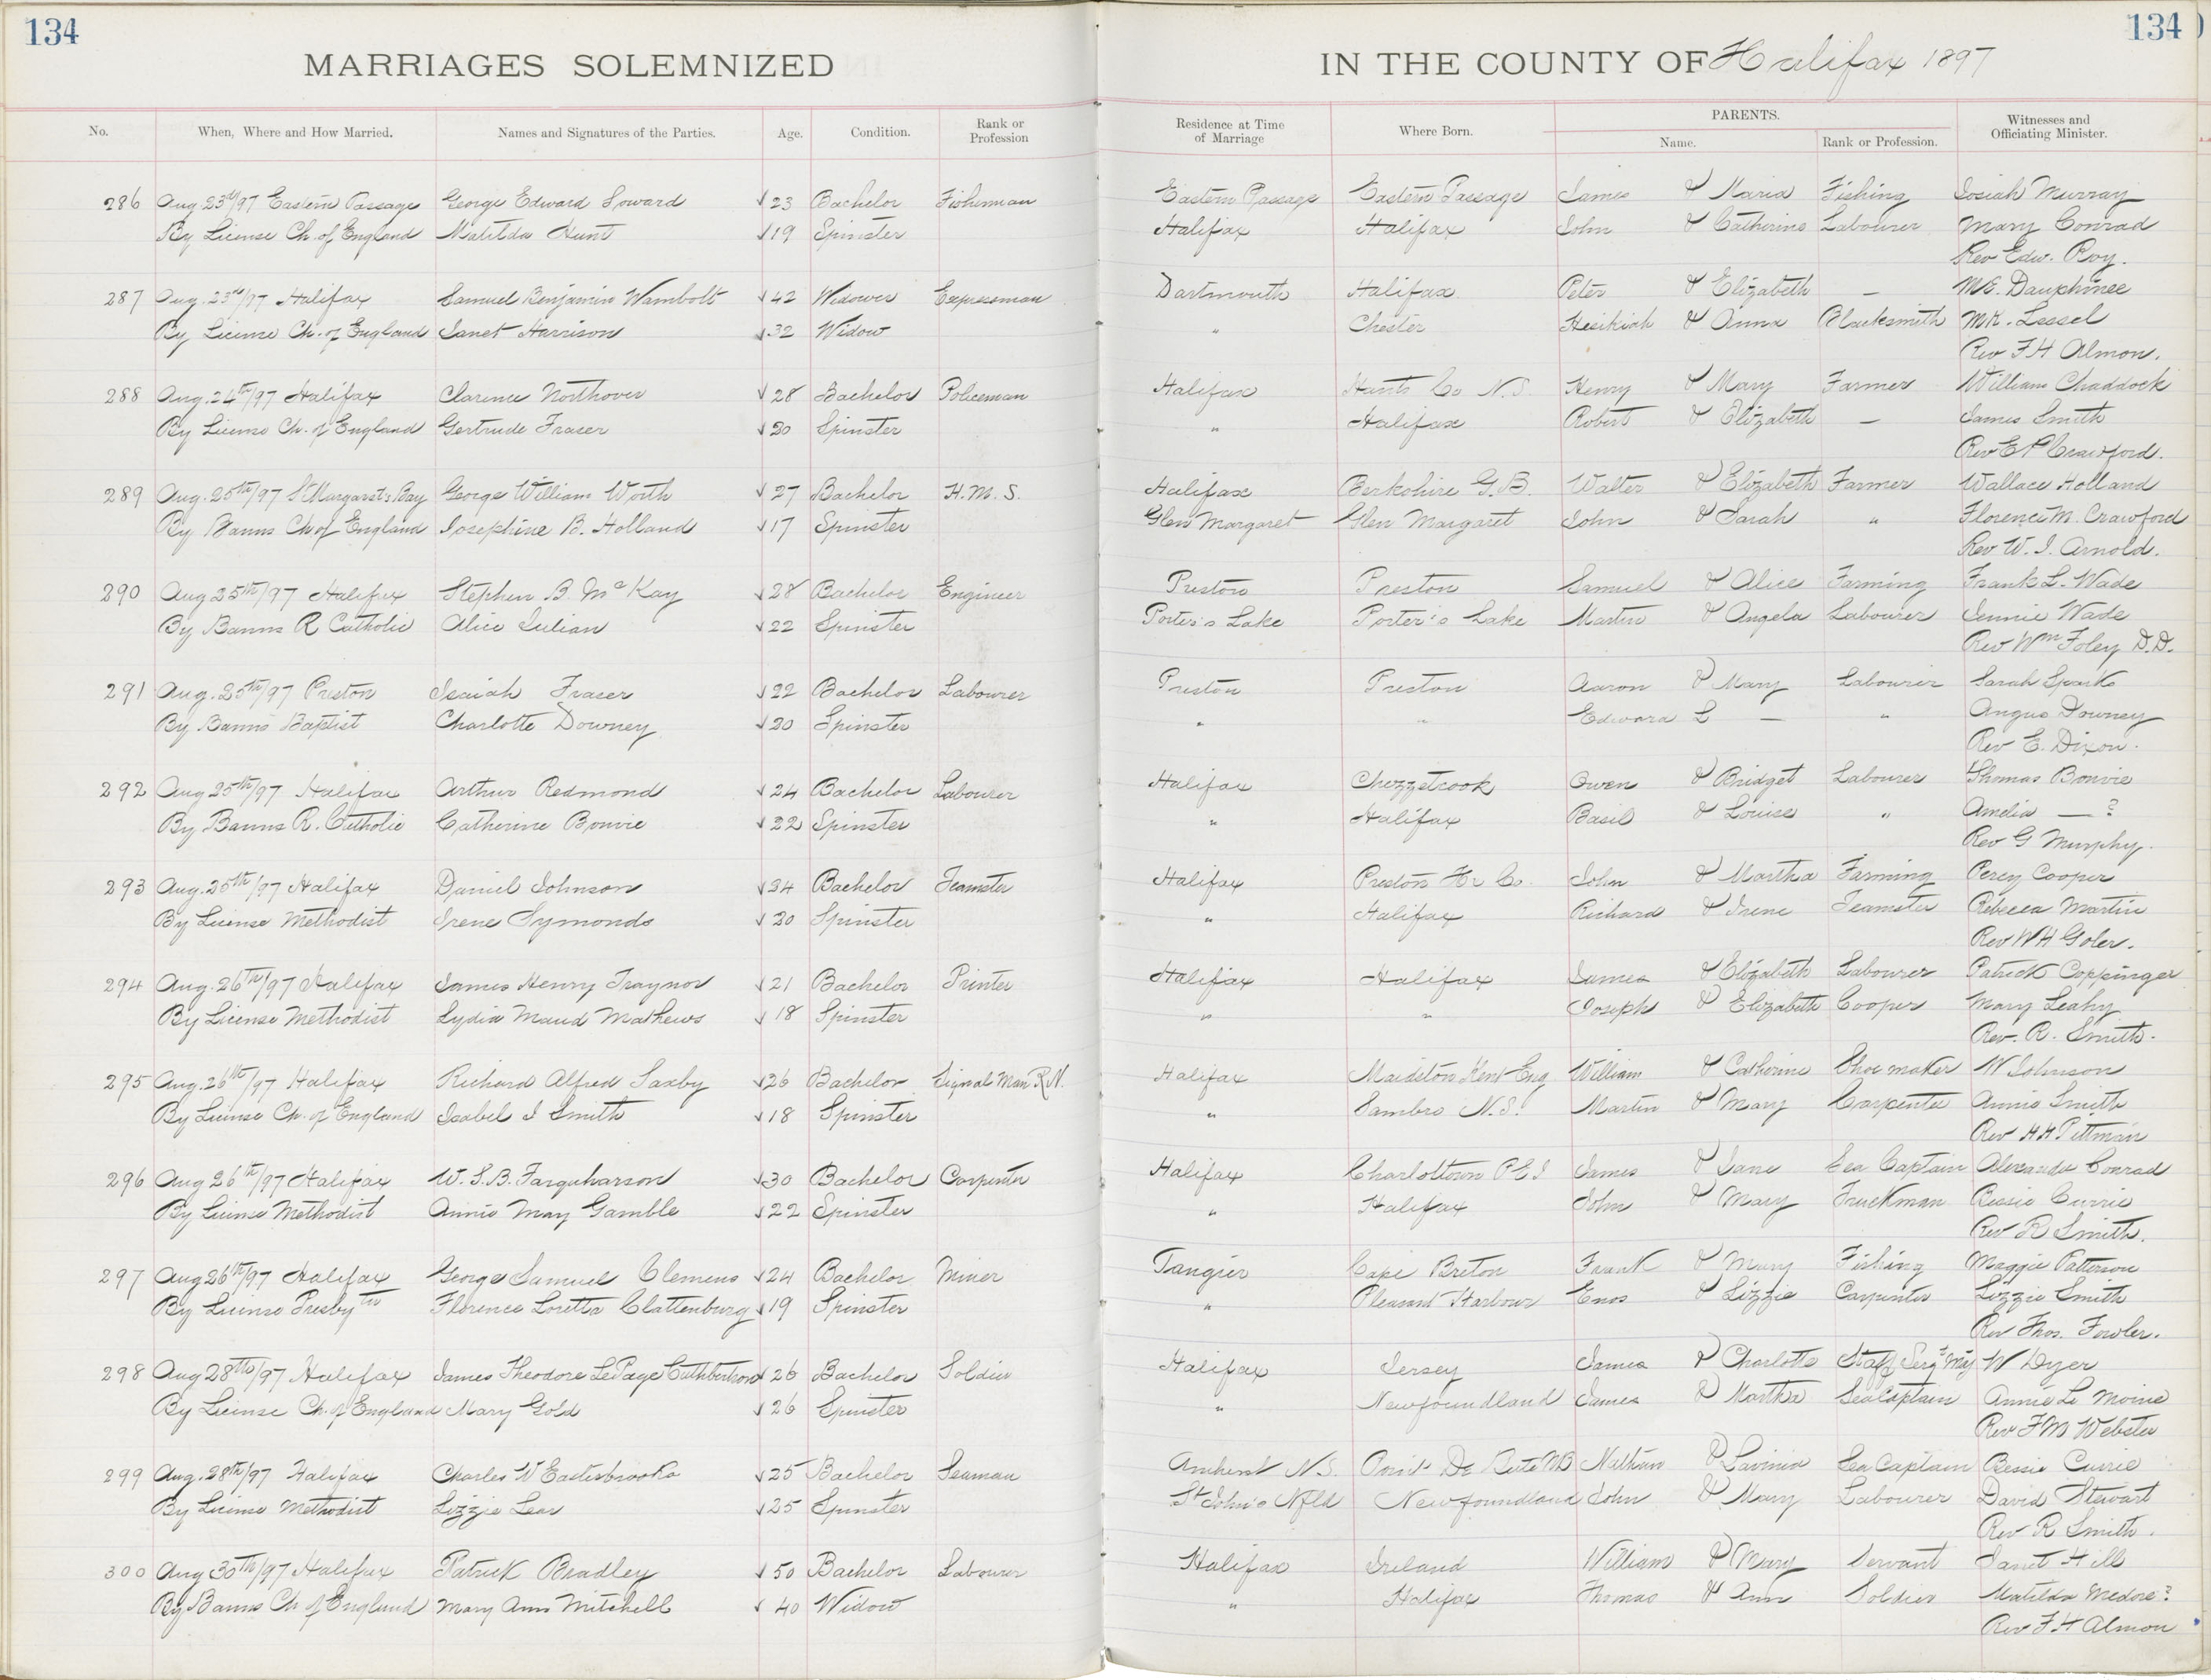 134
134
MARRIAGES SOLEMNIZED IN THE COUNTY OF Halifax 1897
No. When, Where and How Married. Names and Signatures of the Parties. Age. Condition. Rank or Profession Residence at Time of Marriage Where Born. PARENTS. Name. Rank or Profession. Witnesses and Officiating Minister.
286 Aug 23rd/97 Eastern Passage George Edward Soward 23 Bachelor Fisherman Eastern Passage Eastern Passage James & Maria Fishing Josiah Murray
By License Ch. of England Matilda Hunt 19 Spinster Halifax Halifax John & Catherine Labourer Mary Conrad
Rev Edw. Roy.
287 Aug. 23rd/97 Halifax Samuel Benjamin Wambolt 42 Widower Expressman Dartmouth Halifax Peter & Elizabeth — M.E. Dauphinee
By License Ch. of England Janet Harrison 32 Widow " Chester Hesikiah & Anna Blacksmith M.K. Lessel
Rev F H Almon.
288 Aug. 24th/97 Halifax Clarence Northover 28 Bachelor Policeman Halifax Hants Co N.S. Henry & Mary Farmer William Chaddock
By License Ch. of England Gertrude Fraser 20 Spinster " Halifax Robert & Elizabeth — James Smith
Rev E P Crawford.
289 Aug. 25th/97 St Margaret's Bay George William Worth 27 Bachelor H.M.S. Halifax Berkshire G.B. Walter & Elizabeth Farmer Wallace Holland
By Banns Ch of England Josephine B. Holland 17 Spinster Glen Margaret Glen Margaret John & Sarah " Florence M. Crawford
Rev W. J. Arnold.
290 Aug 25th/97 Halifax Stephen B. McKay 28 Bachelor Engineer Preston Preston Samuel & Alice Farming Frank L. Wade
By Banns R Catholic Alice Julian 22 Spinster Porter's Lake Porter's Lake Martin & Angela Labourer Jennie Wade
Rev Wm Foley D.D.
291 Aug. 25th/97 Preston Isaiah Fraser 22 Bachelor Labourer Preston Preston Aaron & Mary Labourer Sarah Sparks
By Banns Baptist Charlotte Downey 20 Spinster " " Edward L — " Angus Downey
Rev E. Dixon.
292 Aug 25th/97 Halifax Arthur Redmond 24 Bachelor Labourer Halifax Chezzetcook Owen & Bridget Labourer Thomas Bonvie
By Banns R. Catholic Catherine Bonvie 22 Spinster " Halifax Basil & Louise " Amelia — ?
Rev G Murphy.
293 Aug. 25th/97 Halifax Daniel Johnson 24 Bachelor Teamster Halifax Preston Hx Co. John & Martha Farming Percy Cooper
By License Methodist Irene Symonds 20 Spinster " Halifax Richard & Irene Teamster Rebecca Martin
Rev W H Goler.
294 Aug. 26th/97 Halifax James Henry Traynor 21 Bachelor Printer Halifax Halifax James & Elizabeth Labourer Patrick Coppinger
By License Methodist Lydia Maud Mathews 18 Spinster " " Joseph & Elizabeth Cooper Mary Leahy
Rev. R. Smith.
295 Aug. 26th/97 Halifax Richard Alfred Saxby 26 Bachelor Signal Man R.N. Halifax Maidston Kent Eng William & Catherine Shoe maker W Johnson
By License Ch. of England Isabel J Smith 18 Spinster " Sambro N.S. Martin & Mary Carpenter Annie Smith
Rev H H Pittman
296 Aug 26th/97 Halifax W. S. B. Farquharson 30 Bachelor Carpenter Halifax Charlottown P E I James & Jane Sea Captain Alexander Conrad
By License Methodist Annie May Gamble 22 Spinster " Halifax John & Mary Truckman Bessie Currie
Rev R Smith.
297 Aug 26th/97 Halifax George Samuel Clemens 24 Bachelor Miner Tangier Cape Breton Frank & Mary Fishing Maggie Patterson
By License Presbytn Florence Loretta Clattenburg 19 Spinster " Pleasant Harbour Enos & Lizzie Carpenter Lizzie Smith
Rev Thos. Fowler.
298 Aug 28th/97 Halifax James Theodore LePage Cuthbertson 26 Bachelor Soldier Halifax Jersey James & Charlotte Staff Sergt Maj W Dyer
By License Ch. of England Mary Gold 26 Spinster " Newfoundland James & Martha Sea Captain Annie Le Moine
Rev F M Webster
299 Aug. 28th/97 Halifax Charles W Easterbrooks 25 Bachelor Seaman Amherst N.S. Point De Bute NB Nathan & Lavinia Sea Captain Bessie Currie
By License Methodist Lizzie Lear 25 Spinster St John's Nfld Newfoundland John & Mary Labourer David Stewart
Rev R Smith.
300 Aug 30th/97 Halifax Patrick Bradley 50 Bachelor Labourer Halifax Ireland William & Mary Servant Janet Hills
By Banns Ch of England Mary Ann Mitchell 40 Widow " Halifax Thomas & Ann Soldier Matilda Medore?
Rev F H Almon